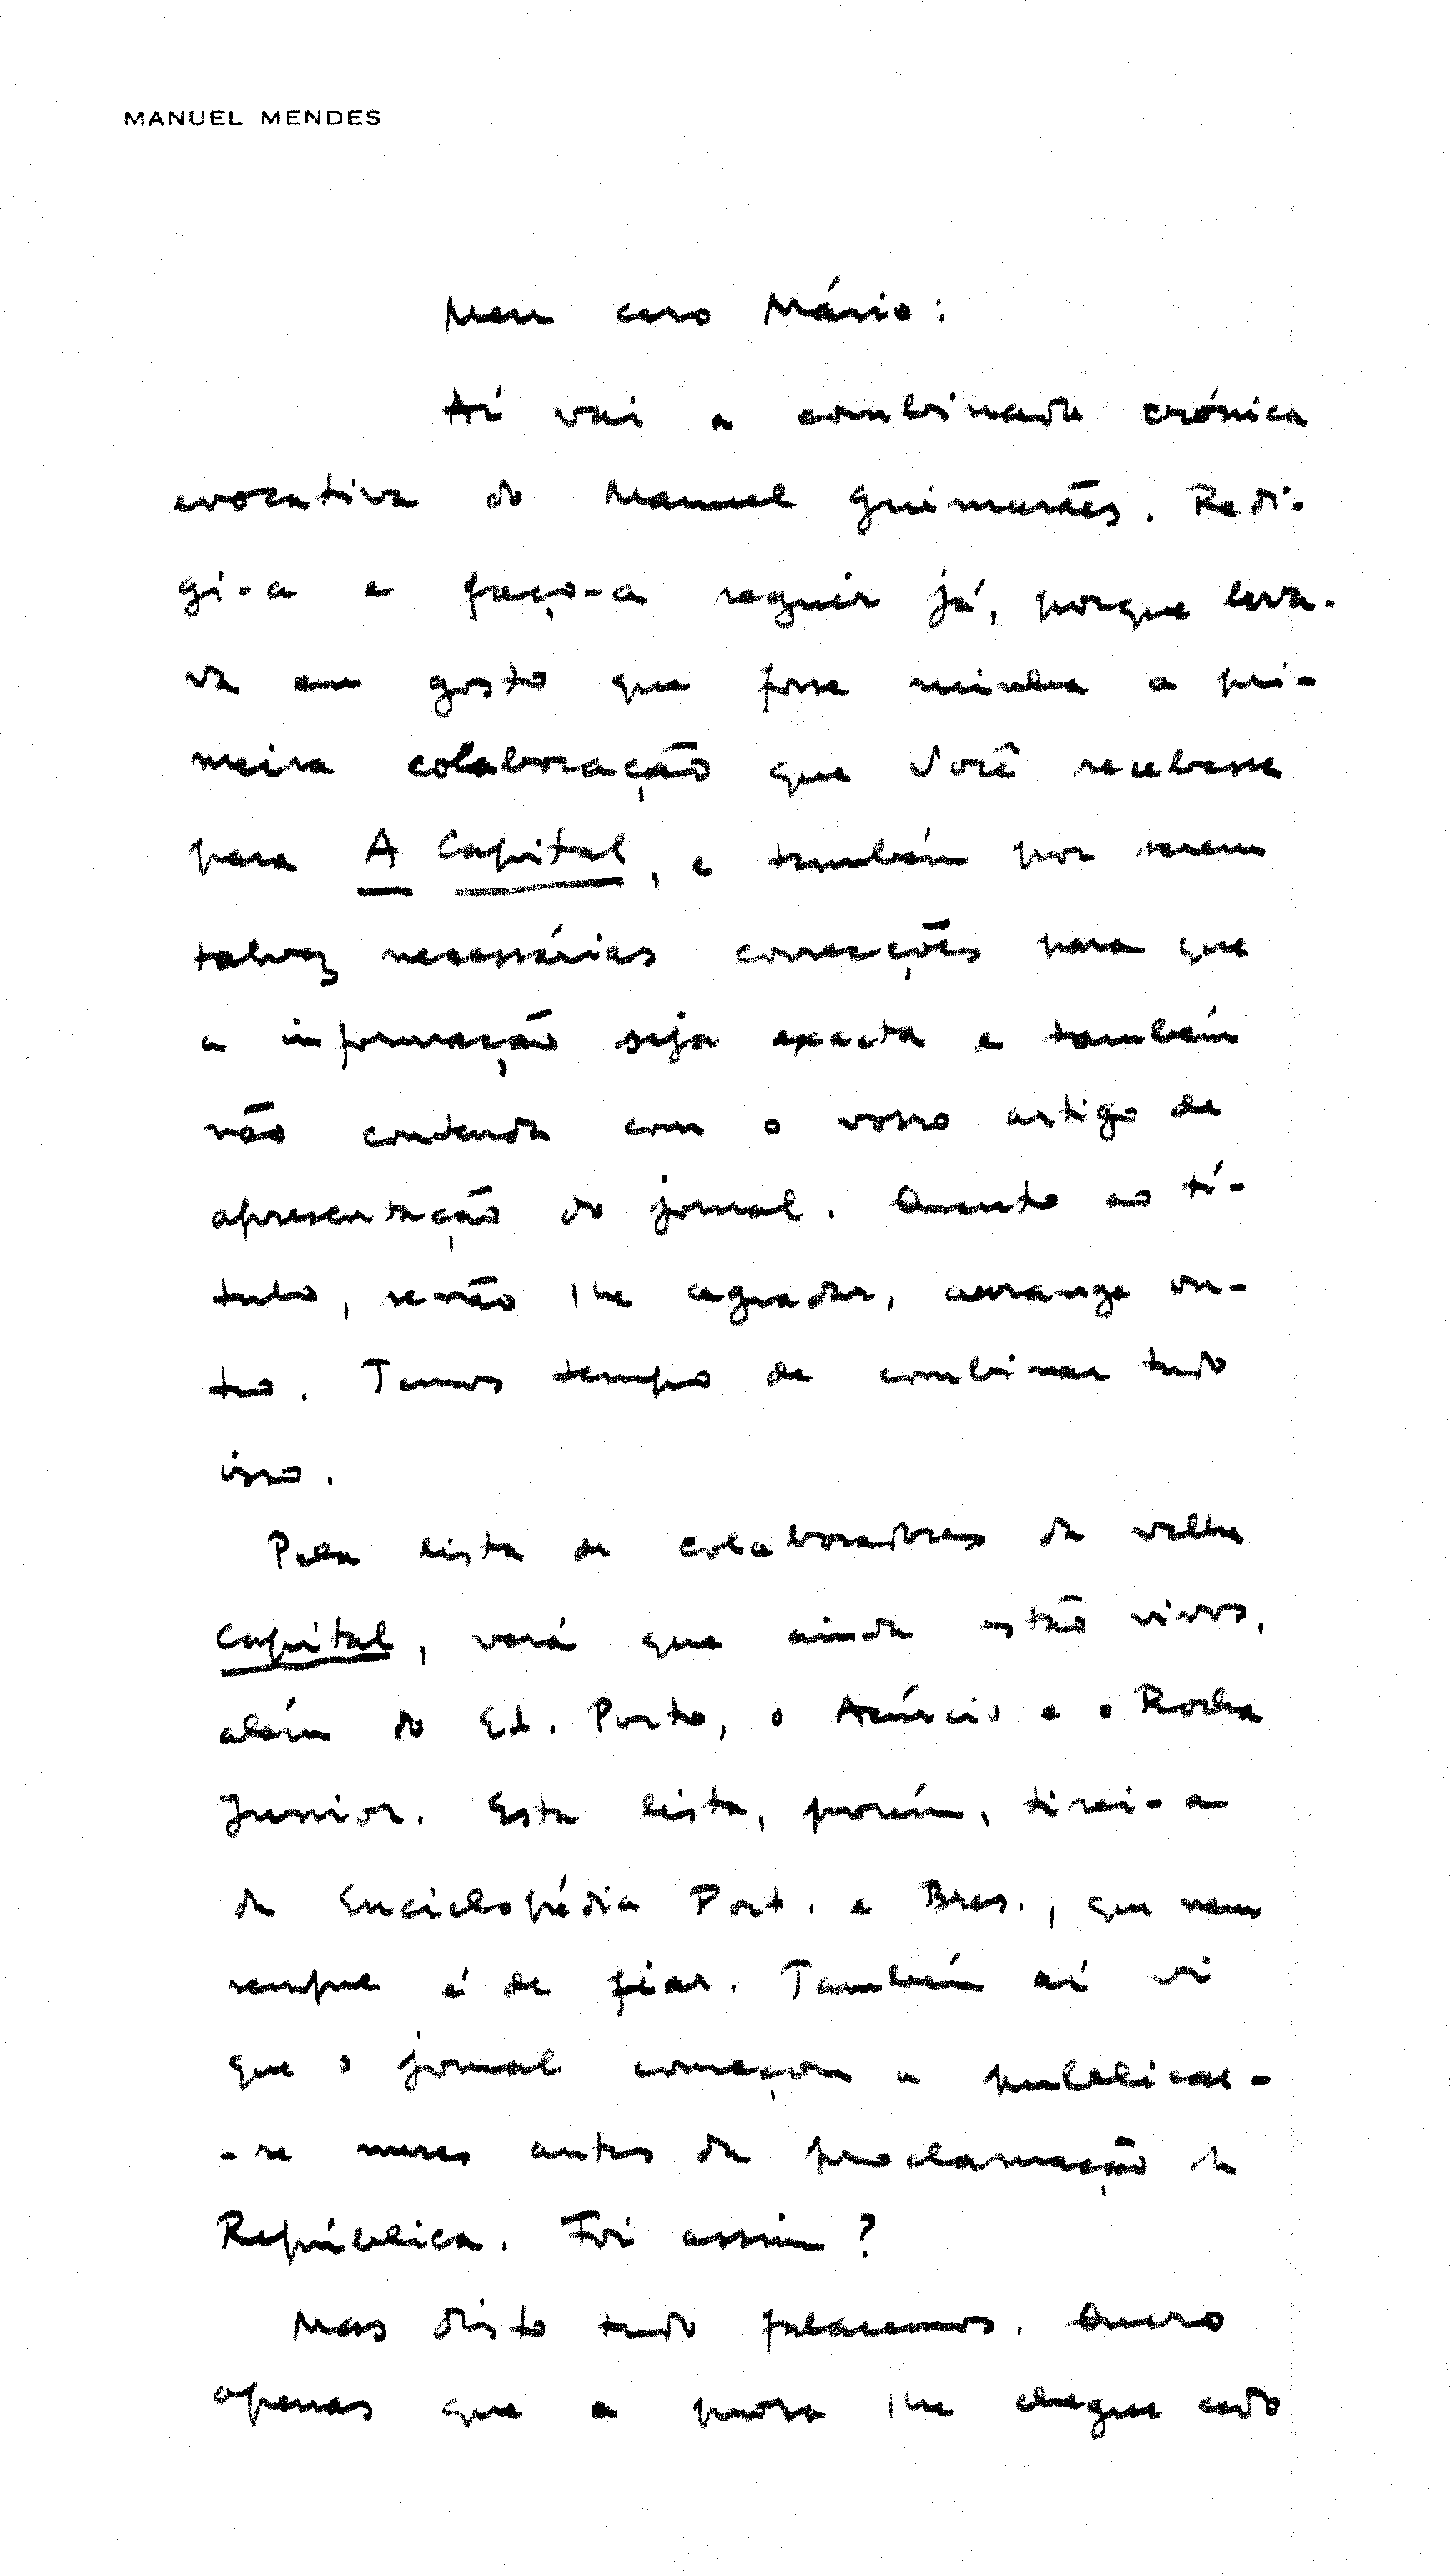 MANUEL MENDES
Meu caro Mário:
Aí vai a combinada crónica
evocativa do Manuel Guimarães. Redi-
gi-a e faço-a seguir já, porque leva-
va em gosto que fosse minha a pri-
meira colaboração que Você recebesse
para A Capital, e também por serem
talvez necessárias correcções para que
a informação seja exacta e também
não contenda com o vosso artigo de
apresentação do jornal. Quanto ao tí-
tulo, se não lhe agradar, arranje ou-
tro. Temos tempo de combinar tudo
isso.
Pela lista de colaboradores da velha
Capital, verá que ainda estão vivos,
além do Ed. Porto, o Acúrcio e o Rocha
Junior. Esta lista, porém, tirei-a
da Enciclopédia Port. e Bras., que nem
sempre é de fiar. Também aí vi
que o jornal começou a publicar-
-se meses antes da proclamação da
República. Foi assim?
Mas disto tudo falaremos. Quero
apenas que a prosa lhe chegue cedo